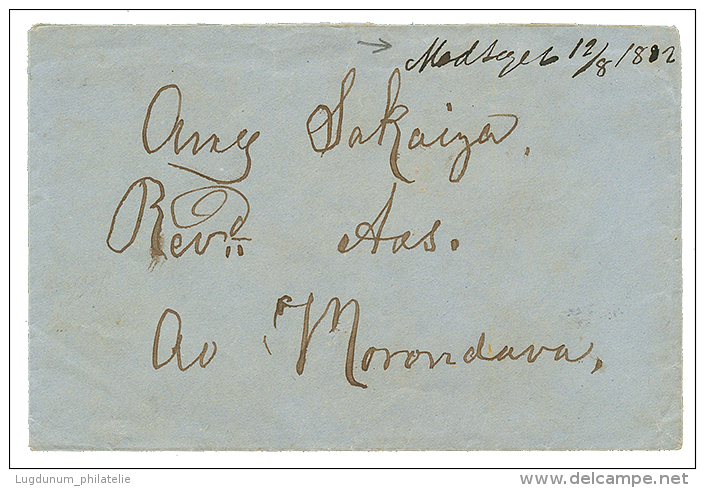 Modtaget 12/8 1882
Amy Sakaiza,
Revd. Aas.
Ao Morondava,
Lugdunum_philatelie
www.delcampe.net